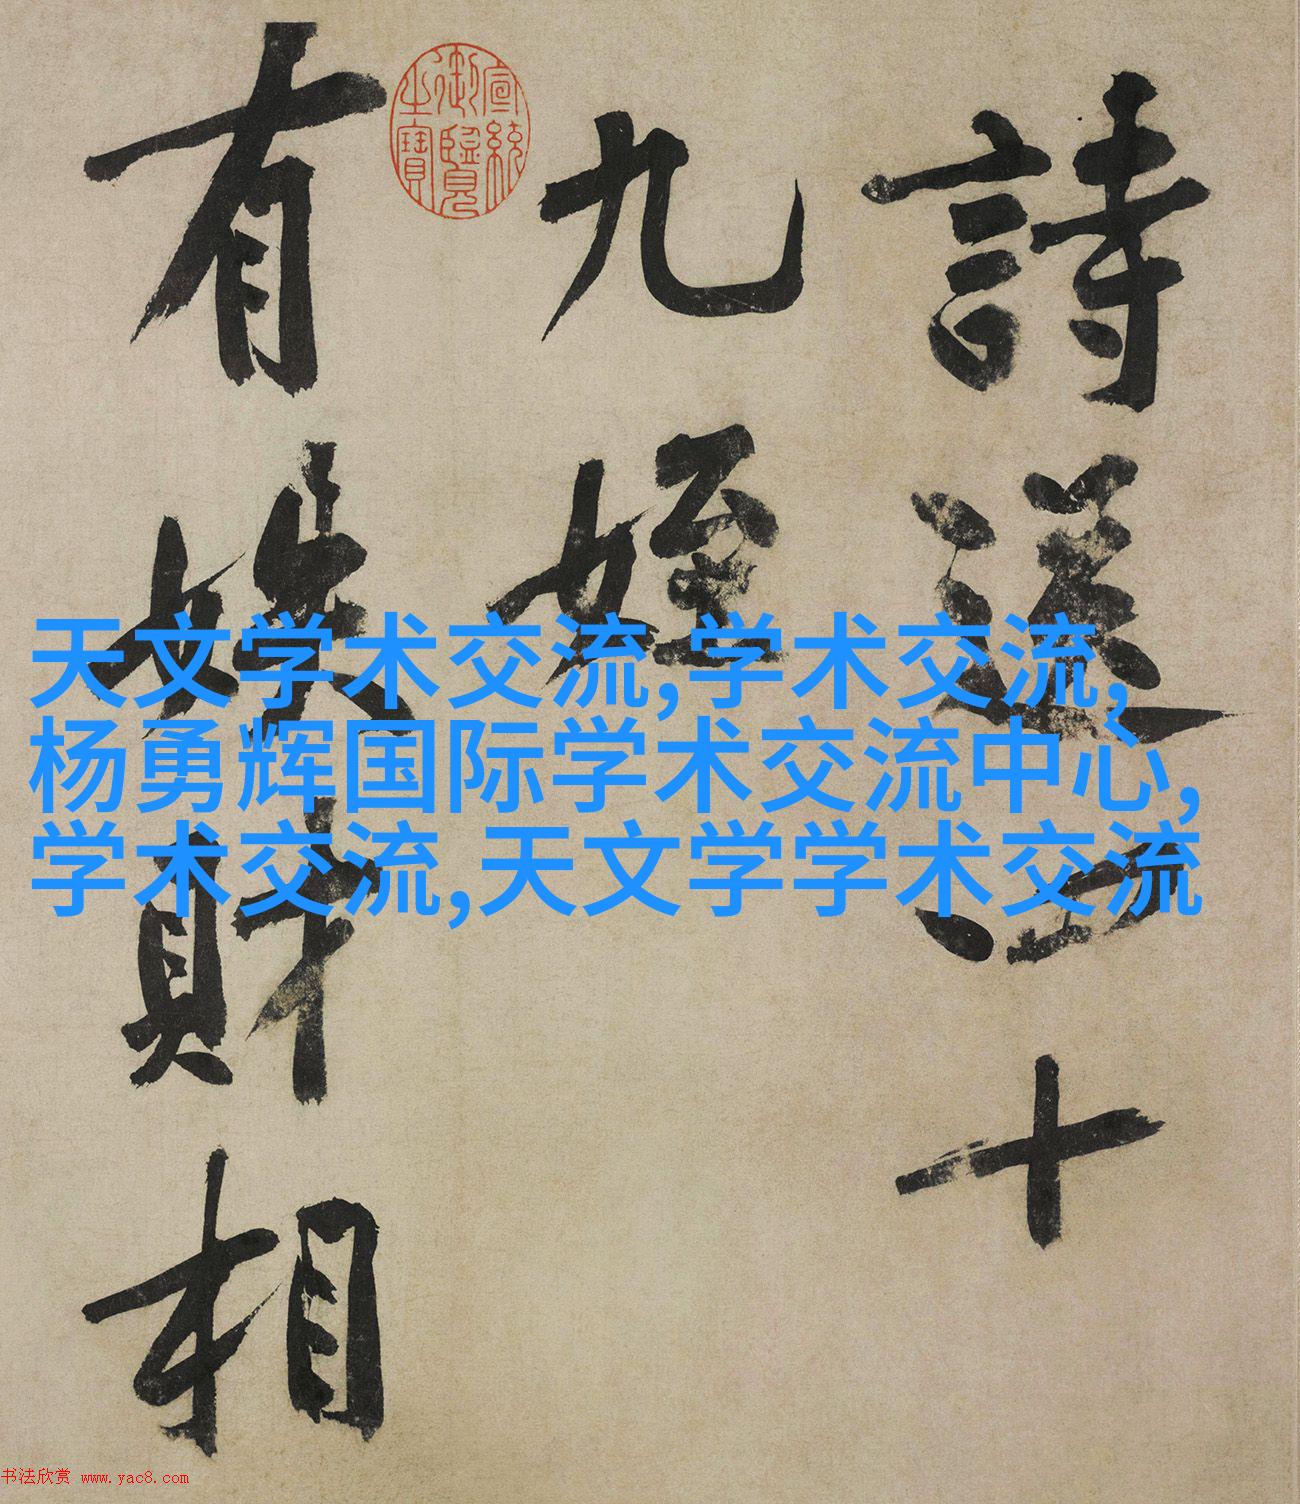 詩送四十
九姪
有財相
宣統
御覽
之寶
天文学术交流,学术交流,
杨勇辉国际学术交流中心,
学术交流,天文学学术交流
书法欣赏 www.yac8.com